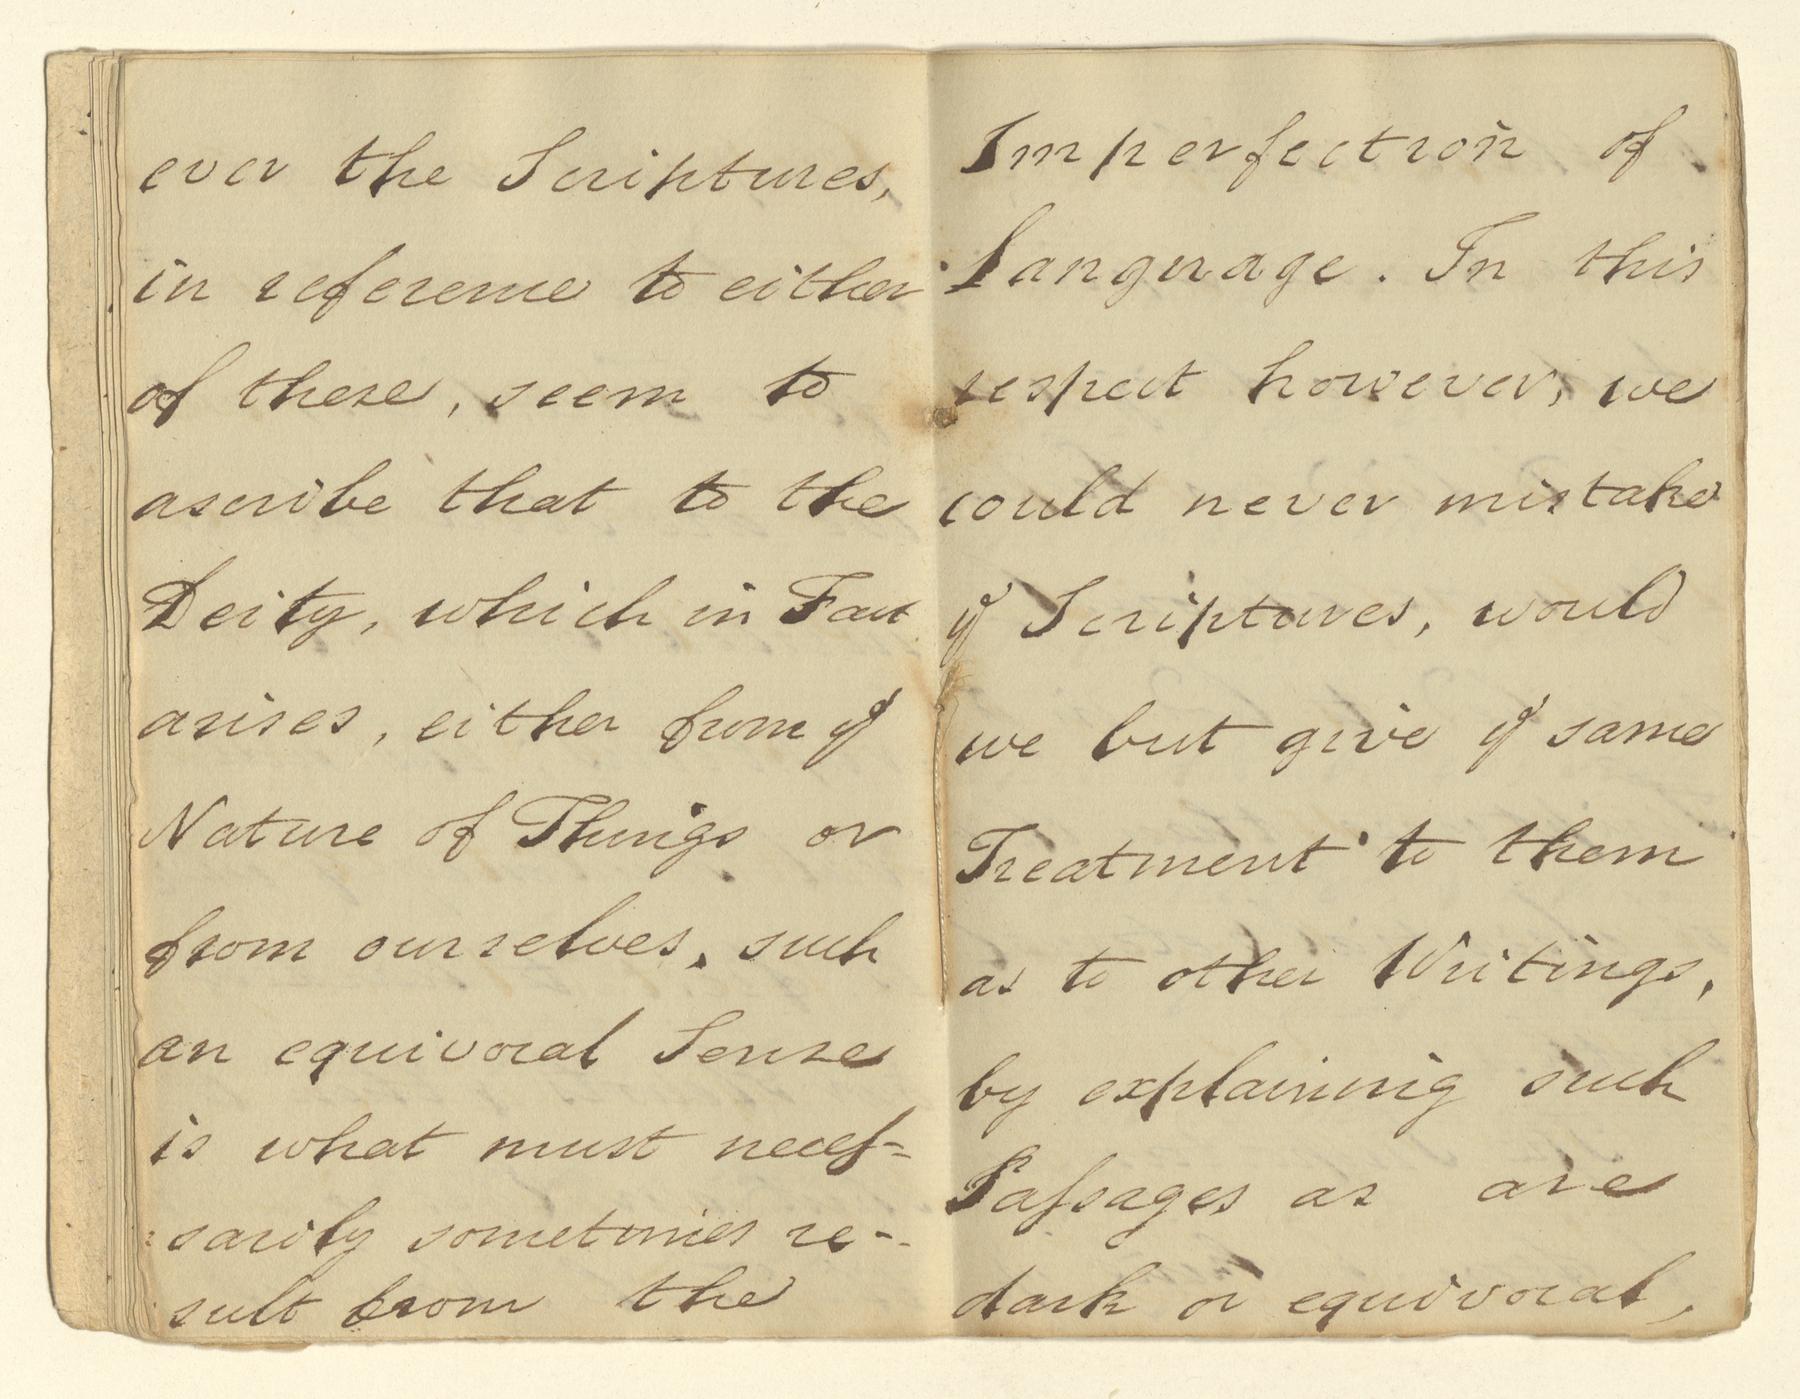 ever the Scriptures,
in reference to either
of these, seem to
ascribe that to the
Deity, which in Fact
arises, either from ye
Nature of Things or
from ourselves, such
an equivocal Sense
is what must neceſ-
sarily sometimes re-
sult from the
Imperfection of
Language. In this
respect however, we
could never mistake
ye Scriptures, would
we but give ye same
Treatment to them
as to other Writings,
by explaining such
Paſsages as are
dark or equivocal,